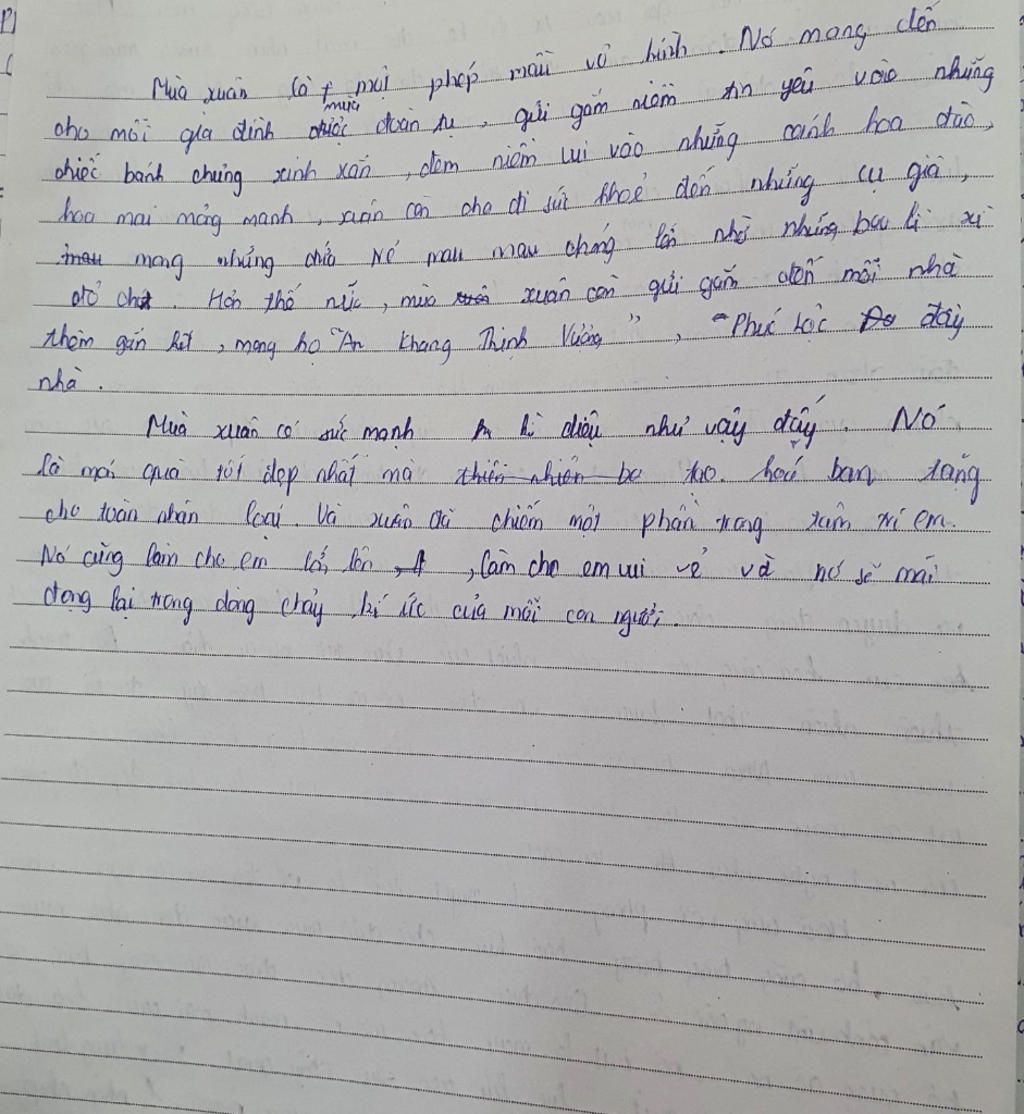 Mùa xuân là một phép màu vô hình. Nó mang đến
cho mỗi gia đình mùa đoàn tụ, gửi gắm niềm tin yêu vào những
chiếc bánh chưng xinh xắn, đem niềm vui vào những cánh hoa đào,
hoa mai mỏng manh, xuân còn cho đi sức khoẻ đến những cụ già,
mong những chú bé mau mau chóng lớn nhờ những bao lì xì
đỏ chót. Hơn thế nữa, mùa xuân còn gửi gắm đến mỗi nhà
thêm gắn kết, mong họ "An Khang Thịnh Vượng", "Phúc Lộc đầy
nhà.
Mùa xuân có sức mạnh kì diệu như vậy đấy. Nó
là món quà tốt đẹp nhất mà tạo hoá ban tặng
cho toàn nhân loại. Và xuân đã chiếm một phần trong tâm trí em.
Nó cũng làm cho em lớn lên, làm cho em vui vẻ và nó sẽ mãi
đọng lại trong dòng chảy kí ức của mỗi con người.